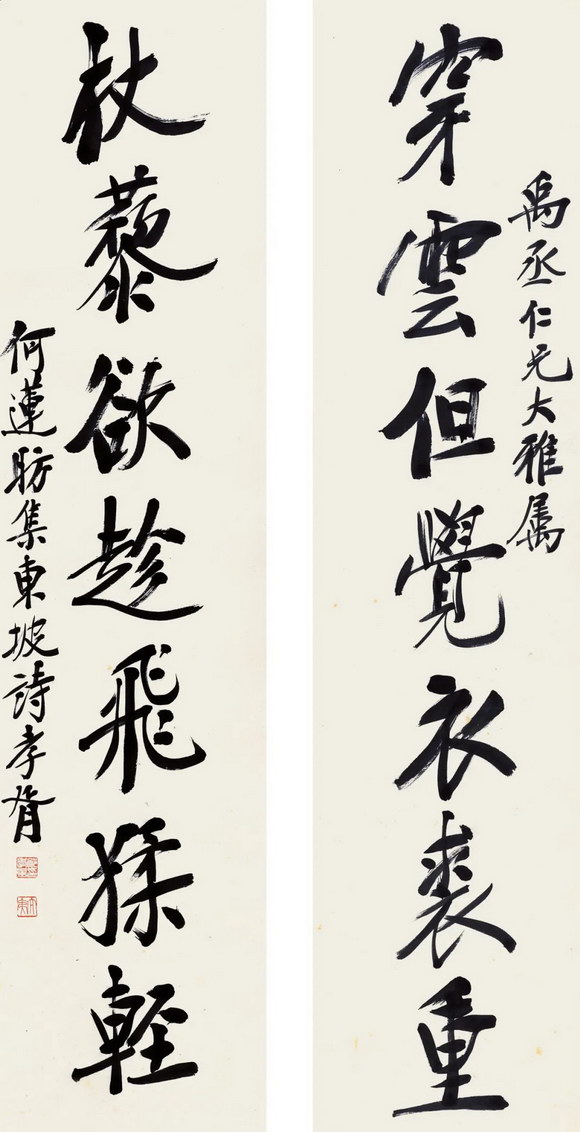 禹丞仁兄大雅属
穿雲但覺衣裘重
杖藜欲趁飛猱輕
何蓮舫集東坡詩孝胥